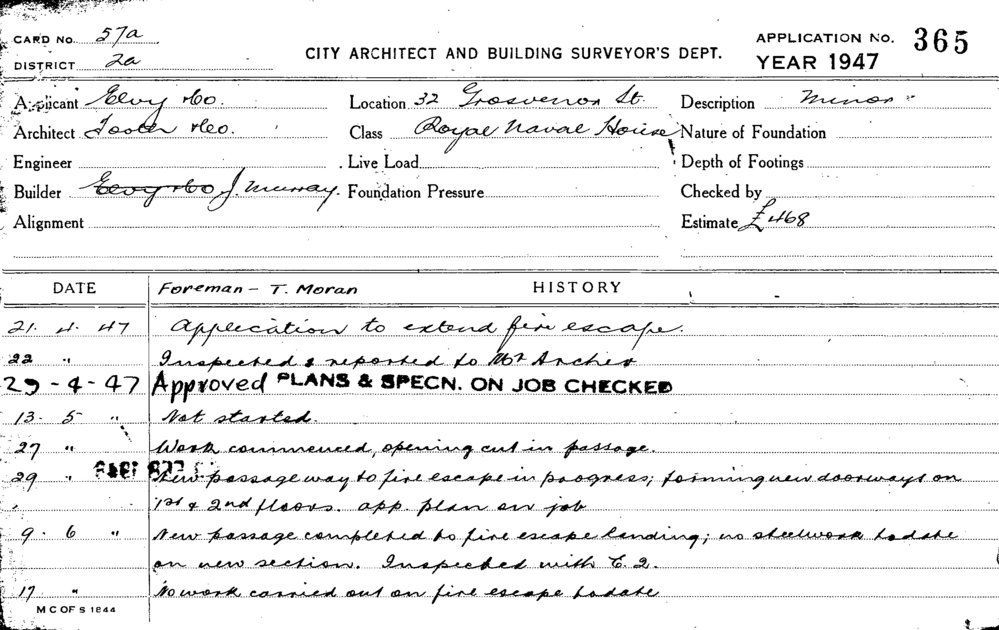 CARD No. 57a
DISTRICT 2a
CITY ARCHITECT AND BUILDING SURVEYOR'S DEPT.
APPLICATION No. 365
YEAR 1947
Applicant Elvy & Co. Location 32 Grosvenor St. Description Minor
Architect & Co. Class Royal Naval House Nature of Foundation
Engineer Live Load Depth of Footings
Builder Elvy & Co J. Murray. Foundation Pressure Checked by
Alignment Estimate £468
DATE Foreman - T. Moran HISTORY
21. 4. 47 Application to extend fire escape.
22 " Inspected & reported to Mr Archer
29-4-47 Approved PLANS & SPECN. ON JOB CHECKED
13. 5 " Not started.
27 " Work commenced, opening cut in passage.
29 " New passage way to fire escape in progress; forming new doorways on
1st & 2nd floors. app. plan on job
9. 6 " New passage completed to fire escape landing; no steelwork todate
on new section. Inspected with
17 " No work carried out on fire escape todate
M C OF S 1844